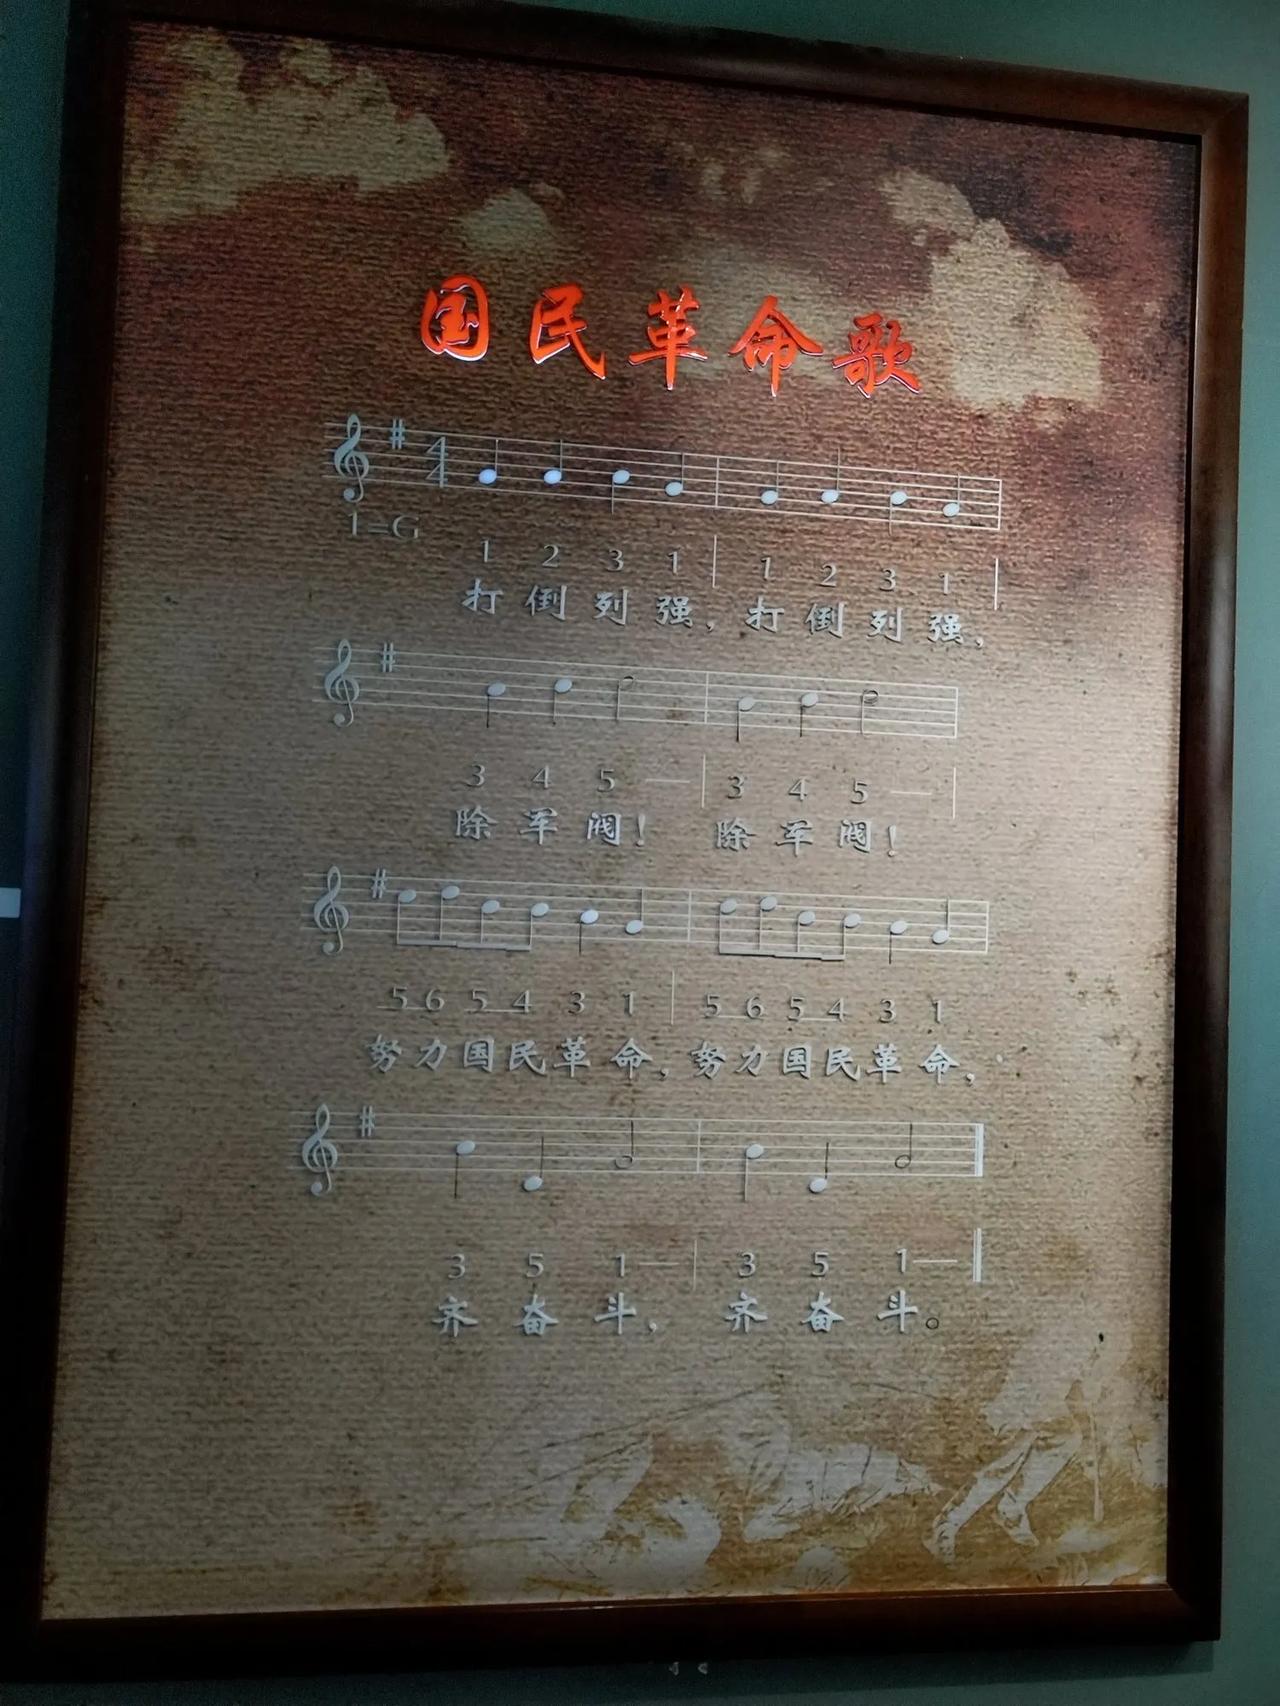 国民革命歌
4
4
1=G
1 2 3 1 | 1 2 3 1 |
打倒列强,打倒列强,
3 4 5 — | 3 4 5 — |
除军阀! 除军阀!
5 6 5 4 3 1 | 5 6 5 4 3 1
努力国民革命,努力国民革命,
3 5 1 — | 3 5 1 — ‖
齐奋斗, 齐奋斗。